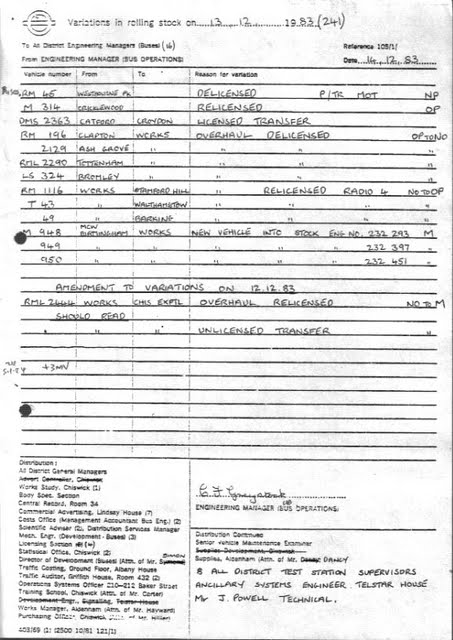 Variations in rolling stock on 13. 12. 1983 (241)
To All District Engineering Managers (Buses) (16)
Reference 105/1/
From ENGINEERING MANAGER (BUS OPERATIONS)
Date 14. 12. 83
Vehicle number From To Reason for variation
RM 45 WESTBOURNE PK DELICENSED P/TR MOT NP
M 314 CRICKLEWOOD RELICENSED OP
DMS 2363 CATFORD CROYDON LICENSED TRANSFER
RM 196 CLAPTON WORKS OVERHAUL DELICENSED OP TO NO
2129 ASH GROVE " " " "
RML 2290 TOTTENHAM " " " "
LS 324 BROMLEY " " " "
RM 1116 WORKS STAMFORD HILL " RELICENSED RADIO 4 NO TO OP
T 43 " WALTHAMSTOW " " "
49 " BARKING " " "
M 948 MCW BIRMINGHAM WORKS NEW VEHICLE INTO STOCK ENG NO. 232 293 M
949 " " " " " 232 397 "
950 " " " " " 232 451 "
AMENDMENT TO VARIATIONS ON 12.12.83
RML 2444 WORKS CHIS EXPTL OVERHAUL RELICENSED NO TO M
SHOULD READ
" " " UNLICENSED TRANSFER "
+3MV
Distribution:
All District General Managers
Advert Controller, Chiswick
Works Study, Chiswick (1)
Body Spec. Section
Central Record, Room 34
Commercial Advertising, Lindsay House (7)
Costs Office (Management Accountant Bus Eng.) (2)
Scientific Adviser (2), Distribution Services Manager
Mech. Engr. (Development - Buses) (3)
Licensing Section (4)
Statistical Office, Chiswick (2)
Director of Development (Buses) (Attn. of Mr.
Traffic Costing, Ground Floor, Albany House
Traffic Auditor, Griffith House, Room 432 (2)
Operations Systems Officer 210-212 Baker Street
Training School, Chiswick (Attn. of Mr. Carter)
Development Engr., Signalling, Telstar House
Works Manager, Aldenham (Attn. of Mr. Hayward)
Purchasing Officer, Chiswick (Attn. of Mr. Hiller)
403/69 (1) (2500 10/81 121/1)
ENGINEERING MANAGER (BUS OPERATIONS)
Distribution Continued
Senior Vehicle Maintenance Examiner
Supplies Development, Chiswick
Supplies, Aldenham (Attn. of Mr. DANDY
8 ALL DISTRICT TEST STATION SUPERVISORS
ANCILLARY SYSTEMS ENGINEER TELSTAR HOUSE
Mr J. POWELL TECHNICAL.